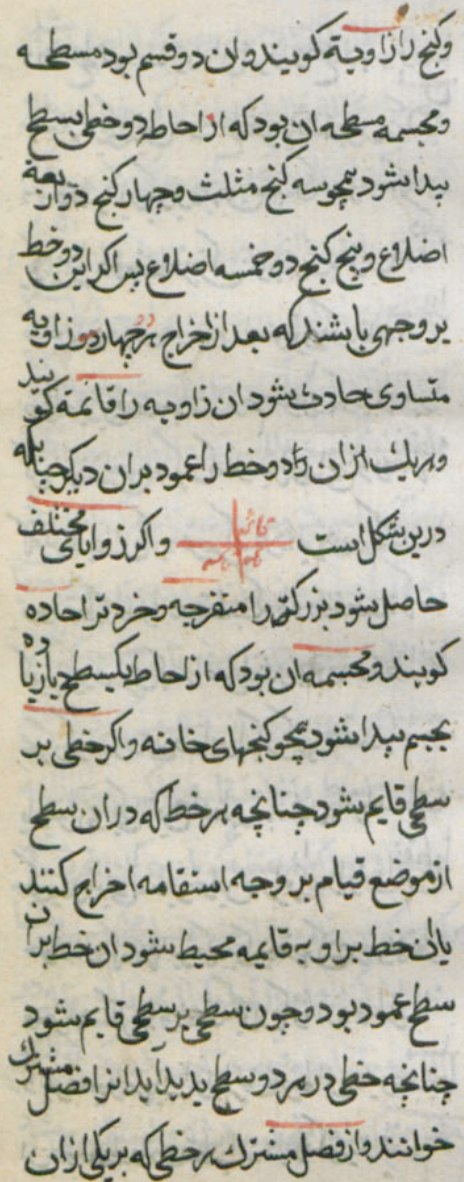 وکنج را زاویة کویند وان دو قسم بود مسطحه
ومجسمه مسطحه ان بود که از احاطه دو خطی بسطح
پیدا شود همچو سه کنج مثلث وچهار کنج ذو اربعة
اضلاع وپنج کنج ذو خمسه اضلاع پس اکر این دو خط
بر وجهی باشند که بعد از اخراج هر چهار دو زاویه
متساوی حادث شود ان زاویه را قائمه کویند
وهریک ازان دو خط را عمود بران دیکر چنانکه
درین شکل است قائمه قائمه قائمه واکر زوایای مختلف
حاصل شود بزرکتر را منفرجه وخردتر را حاده
کویند ومجسمه ان بود که از احاطه یکسطح یا زیاده
بجسم پیدا شود همچو کنجهای خانه واکر خطی بر
سطحی قایم شود چنانچه هر خط که دران سطح
از موضع قیام بر وجه استقامه اخراج کنند
باان خط بزاویه قایمه محیط شود ان خط بران
سطح عمود بود وچون سطحی بر سطحی قایم شود
چنانچه خطی در هر دو سطح پدید آید انرا فصل مشترک
خوانند واز فصل مشترک هر خطی که بر یکی ازان